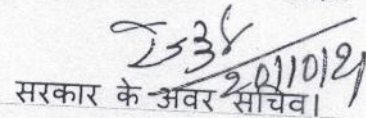 2538
20/10/21
सरकार के अवर सचिव।